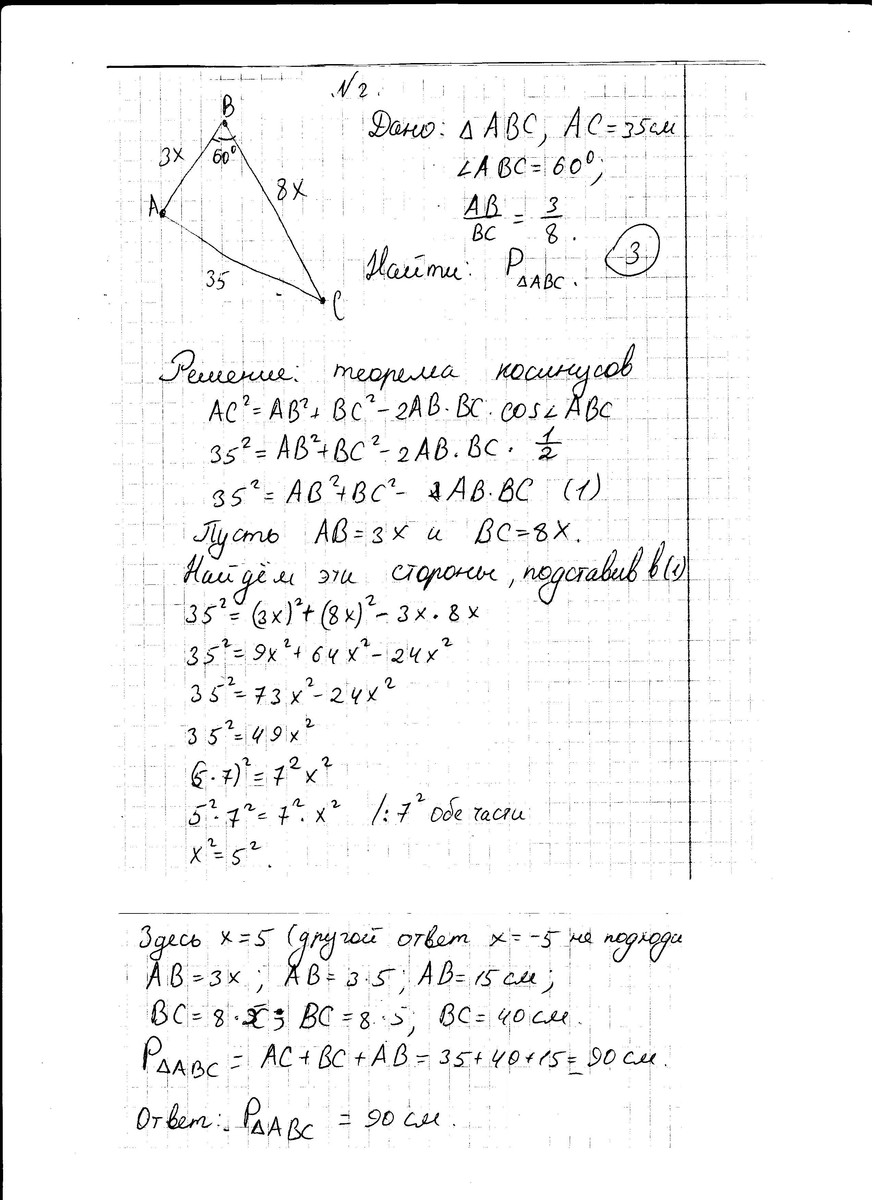 N 2.
B
60°
3x
8x
A
35
C
Дано: △ABC, AC=35см
∠ABC=60°;
AB/BC = 3/8.
3
Найти: P△ABC.
Решение: теорема косинусов
AC²=AB²+BC²-2AB·BC·cos∠ABC
35²=AB²+BC²-2AB·BC·1/2
35²=AB²+BC²-AB·BC (1)
Пусть AB=3x и BC=8x.
Найдём эти стороны, подставив в(1)
35²=(3x)²+(8x)²-3x·8x
35²=9x²+64x²-24x²
35²=73x²-24x²
35²=49x²
(5·7)²=7²x²
5²·7²=7²·x² /:7² обе части
x²=5².
Здесь x=5 (другой ответ x=-5 не подходи
AB=3x; AB=3·5; AB=15см;
BC=8·x; BC=8·5; BC=40см.
P△ABC = AC+BC+AB=35+40+15=90см.
Ответ: P△ABC = 90см.